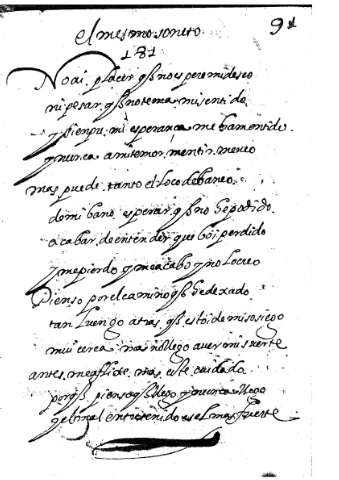 el mesmo soneto
91
181
No ai plazer qª no espere mi deseo
ni pesar qª no tema mi sentido
y sienpre mi esperança me ha mentido
y nunca a mi temor mentir me veo
mas puede tanto el loco debaneo
de mi bano esperar qª no he podido
acabar de entender que boi perdido
y me pierdo y me acabo y no lo creo
Pienso por el camino qª he dexado
tan luengo atras qª estoi de mi sosiego
mui cerca mas no llego a ver mi suerte
antes me aflide mas este cuidado
porqª pienso qª llego y nunca llego
y el mal entretenido es el mas fuerte